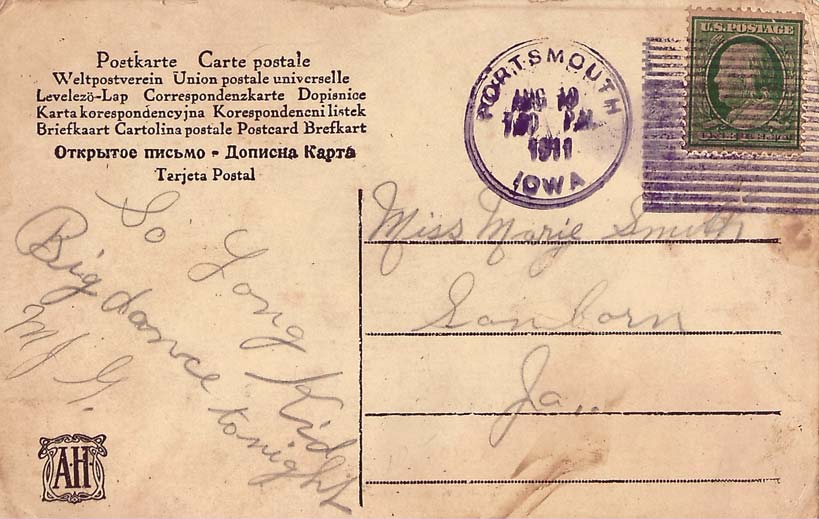 Postkarte Carte postale
Weltpostverein Union postale universelle
Levelező-Lap Correspondenzkarte Dopisnice
Karta korespondencyjna Korespondencni listek
Briefkaart Cartolina postale Postcard Brefkart
Открытое письмо - Дописна Карта
Tarjeta Postal
So Long Kid
Big dance tonight
M J G.
AH
PORTSMOUTH
AUG 10
P.M.
1911
IOWA
U.S. POSTAGE
Miss Marie Smith
Sanborn
Ia.